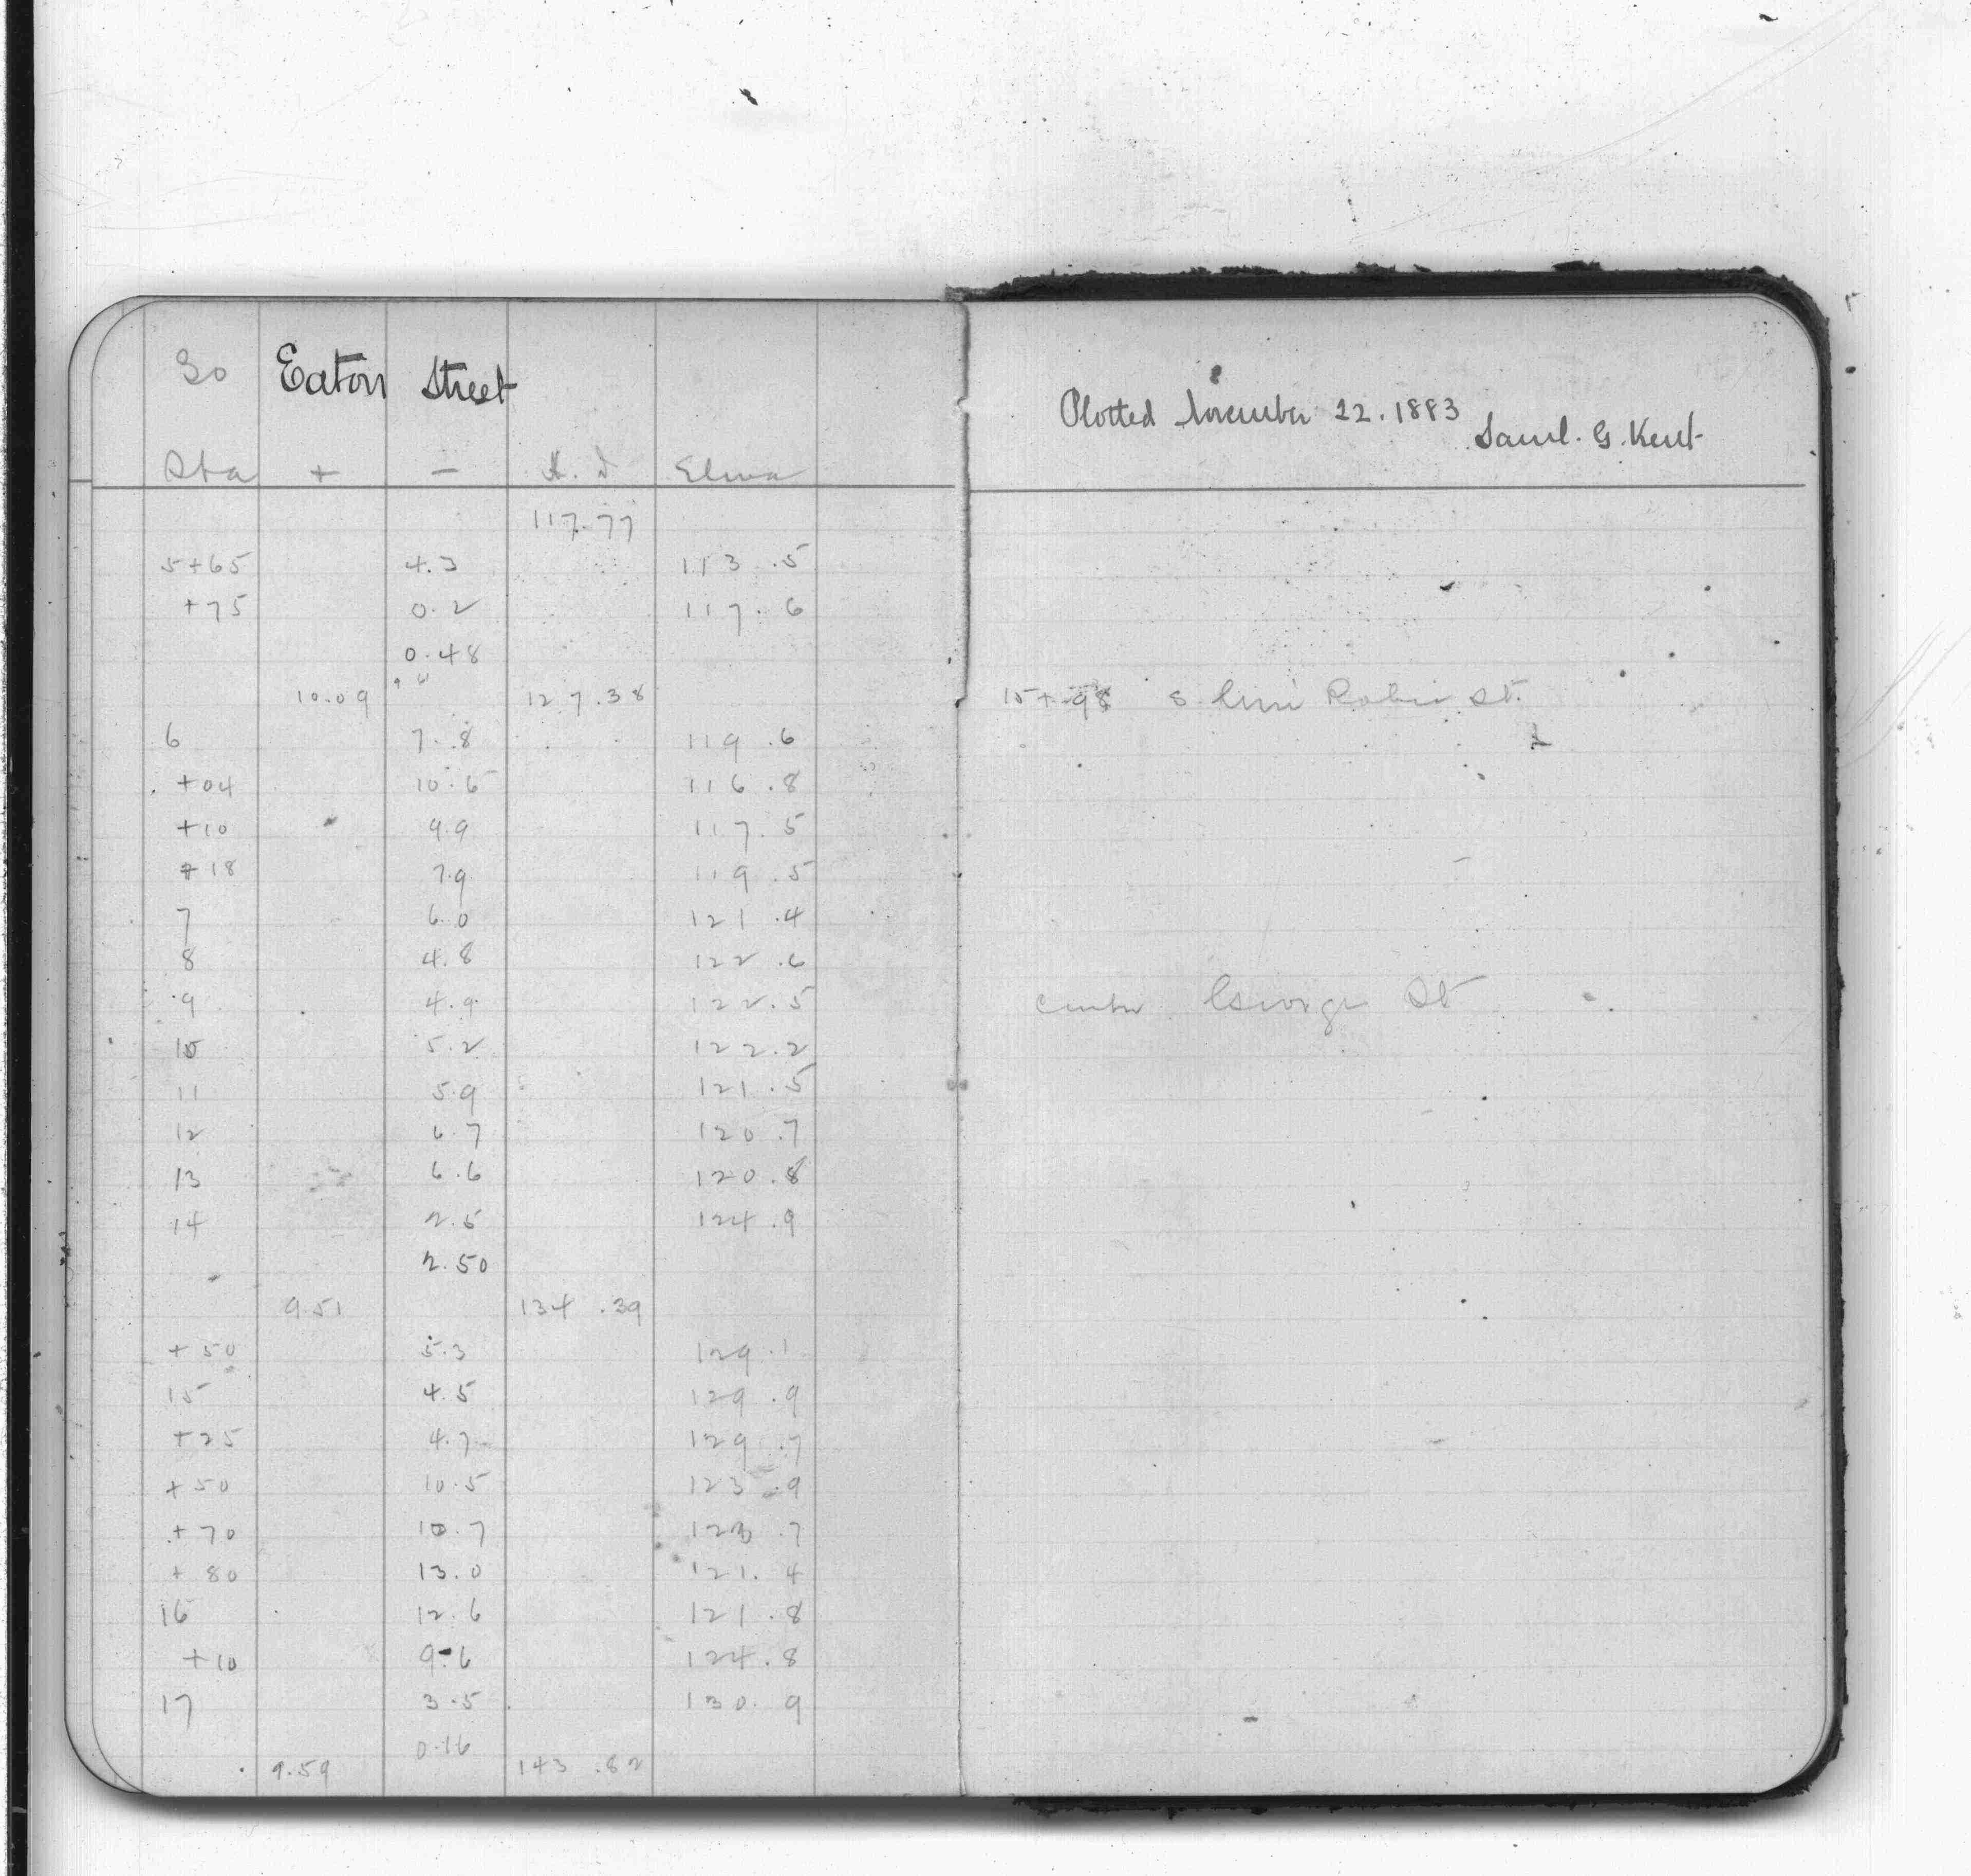 So Eaton Street
Sta + - H. I Eleva
117.77
5+65 4.3 113.5
+75 0.2 117.6
0.48
10.09 127.38
6 7.8 119.6
+04 10.6 116.8
+10 9.9 117.5
+18 7.9 119.5
7 6.0 121.4
8 4.8 122.6
9 4.9 122.5
10 5.2 122.2
11 5.9 121.5
12 6.7 120.7
13 6.6 120.8
14 2.5 124.9
2.50
9.51 134.39
+50 5.3 129.1
15 4.5 129.9
+25 4.7 129.7
+50 10.5 123.9
+70 10.7 123.7
+80 13.0 121.4
16 12.6 121.8
+10 9.6 124.8
17 3.5 130.9
0.16
9.59 143.82
Plotted November 22. 1883
Saml. G. Kent
15+98 S line St.
center George St